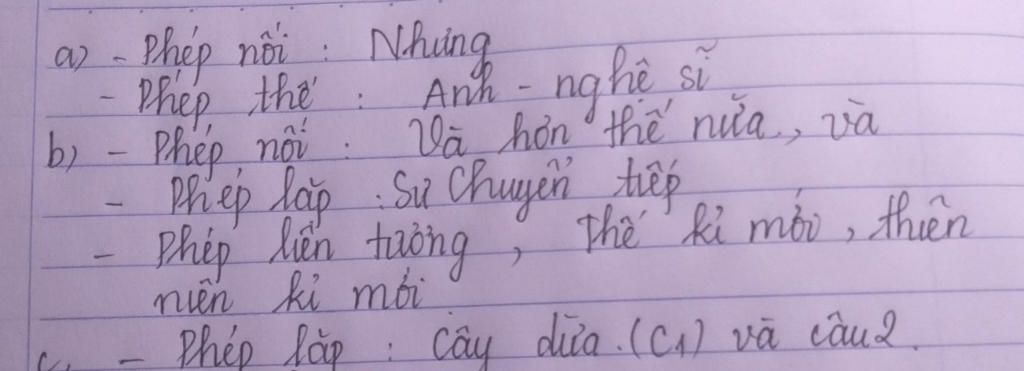 a) - Phép nối : Nhưng
- Phép thế : Anh - nghệ sĩ
b) - Phép nối : Và hơn thế nữa, và
- Phép lặp : Sự chuyển tiếp
- Phép liên tưởng, thế kỉ mới, thiên
niên kỉ mới
c, - Phép lặp : Cây dừa.(C1) và câu 2.